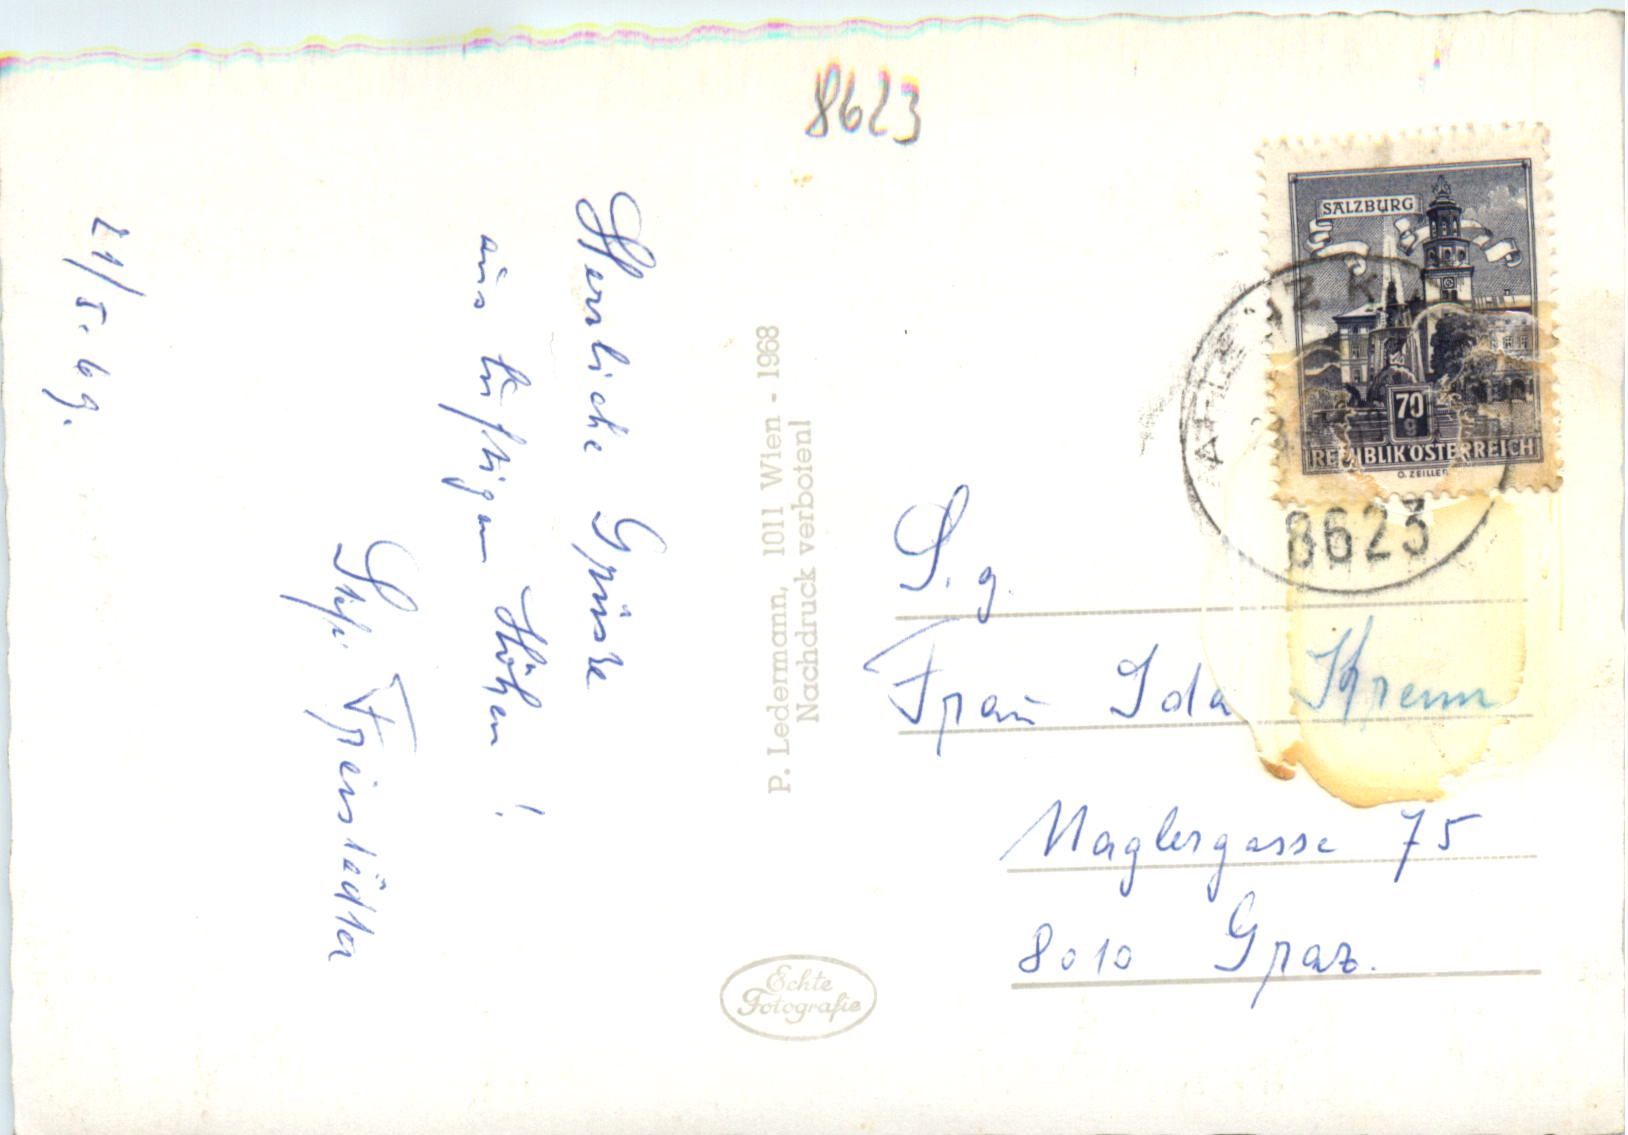 8623
29/5. 69.
Herrliche Grüsse
aus luftigen Höhen!
Steff. Freistädter
P. Ledermann, 1011 Wien - 1968
Nachdruck verboten!
Echte
Fotografie
SALZBURG
70
g
REPUBLIK ÖSTERREICH
O. ZEILLER
8623
S. g.
Frau Ida Krenn
Naglergasse 75
8010 Graz.